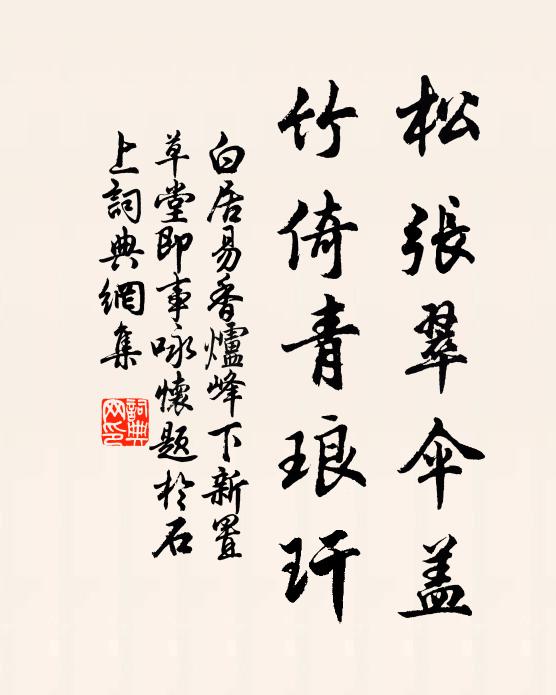 松張翠伞盖
竹倚青琅玕
白居易香爐峰下新置
草堂即事咏懷题於石
上詞典網集
詞典
网印